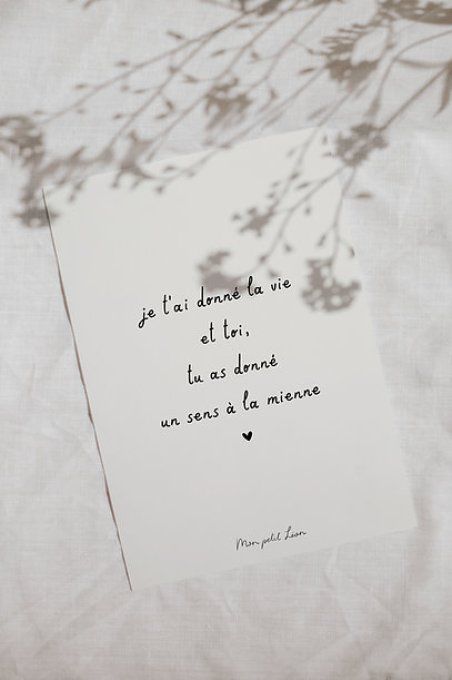 je t'ai donné la vie
et toi,
tu as donné
un sens à la mienne
♥
Mon petit Léon